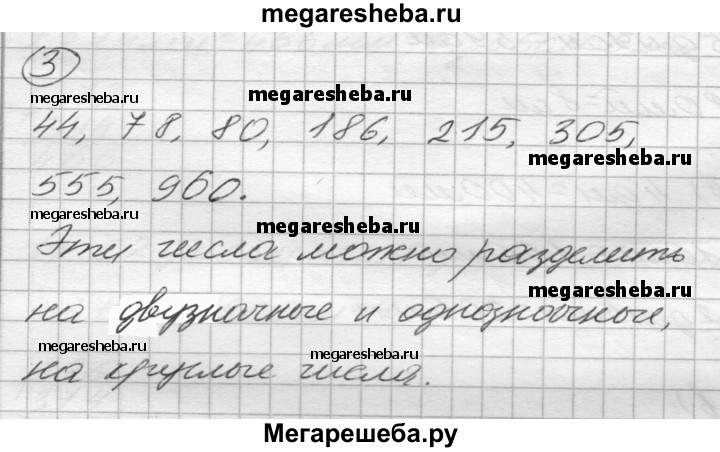 megaresheba.ru
3
megaresheba.ru megaresheba.ru
44, 78, 80, 186, 215, 305,
megaresheba.ru
555, 960.
megaresheba.ru megaresheba.ru
Эти числа можно разделить
megaresheba.ru
на двузначные и однозначные,
megaresheba.ru megaresheba.ru
на круглые числа.
Мегарешеба.ру